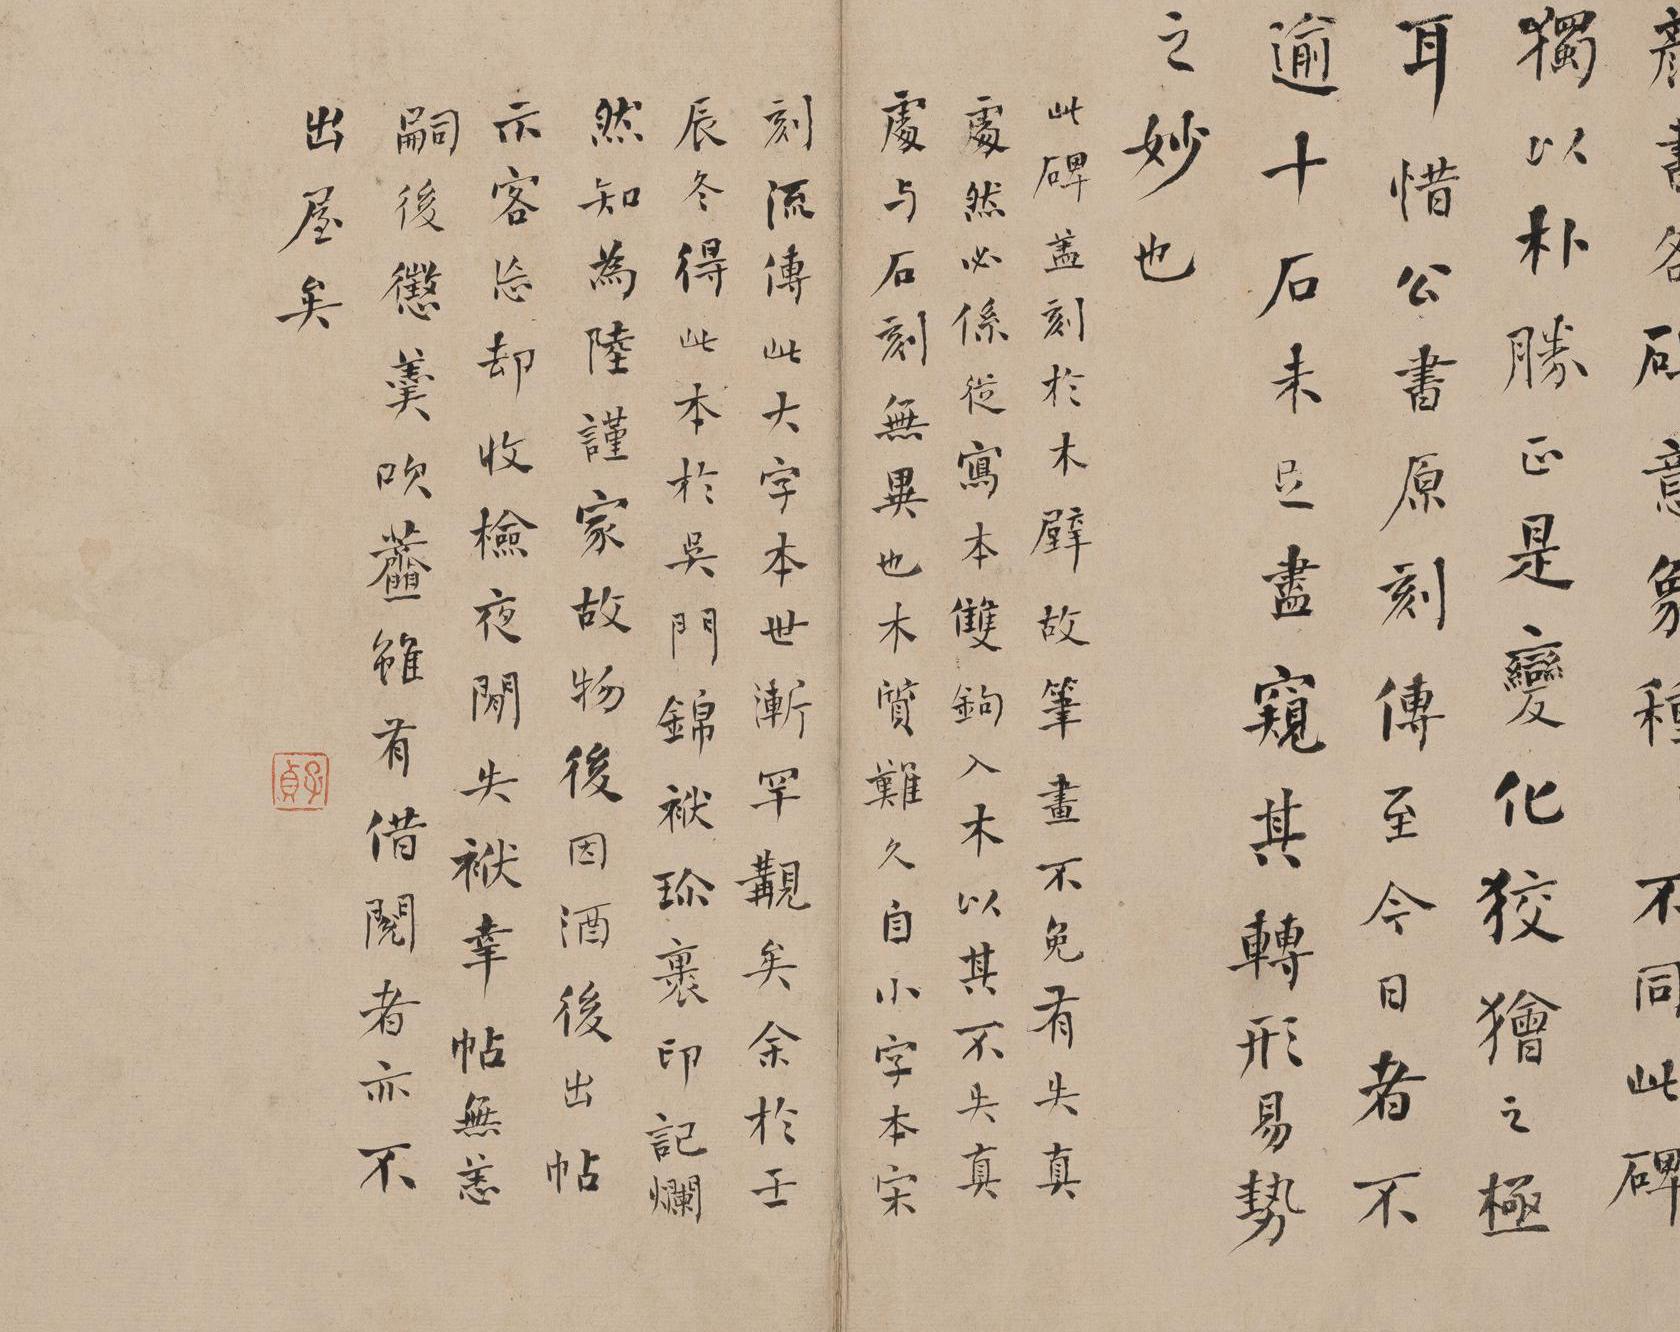 顏書各碑意象種種不同此碑
獨以朴勝正是變化狡獪之極
耳惜公書原刻傳至今日者不
逾十石未足盡窺其轉形易勢
之妙也
此碑蓋刻於木壁故筆畫不免有失真
處然必係從寫本雙鉤入木以其不失真
處与石刻無異也木質難久自小字本宋
刻流傳此大字本世漸罕覯矣余於壬
辰冬得此本於吳門錦袱珎裹印記爛
然知為陸謹家故物後因酒後出帖
示客忘却收檢夜閒失袱幸帖無恙
嗣後懲羹吹虀雖有借閱者亦不
出屋矣
子貞